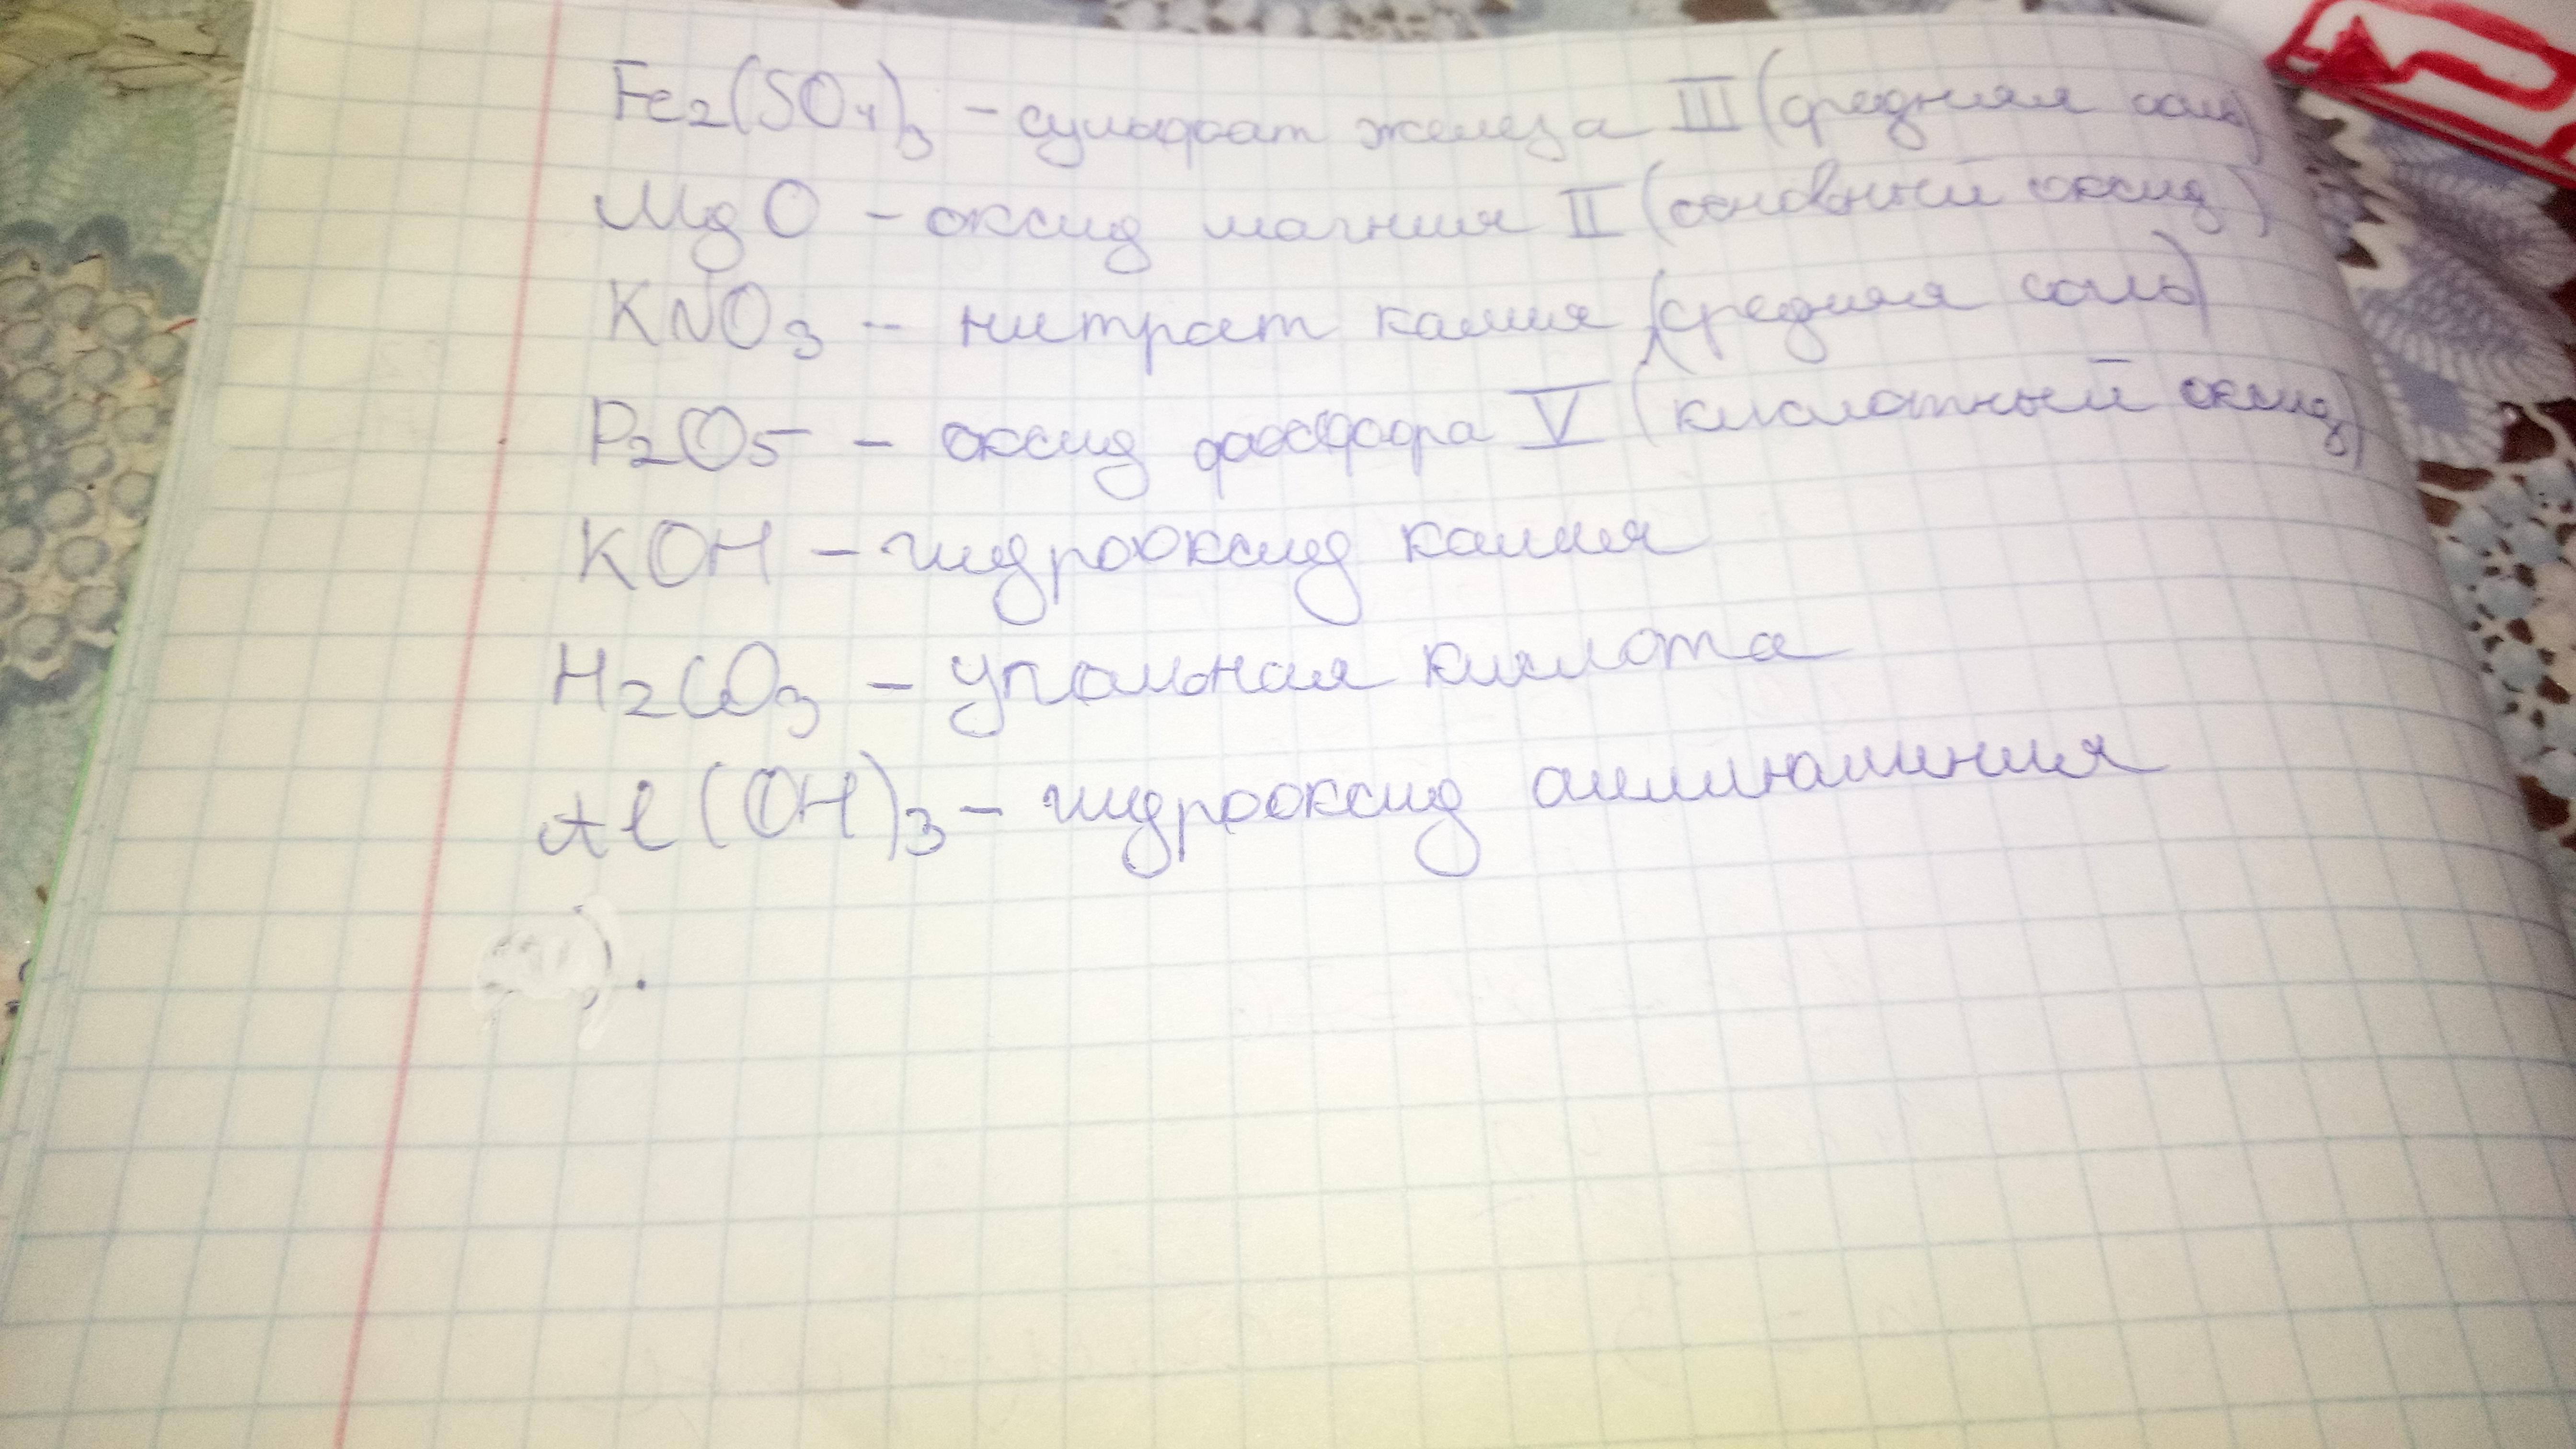 Fe2(SO4)3 – сульфат железа III (средняя соль)
MgO – оксид магния II (основный оксид)
KNO3 – нитрат калия (средняя соль)
P2O5 – оксид фосфора V (кислотный оксид)
KOH – гидрооксид калия
H2CO3 – угольная кислота
Al(OH)3 – гидрооксид аллюминия